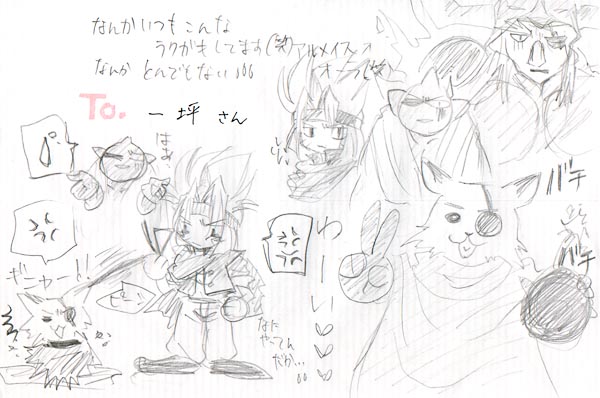 なんかいつもこんな
ラクガキしてます(笑)アルメイス→
なんか とんでもない
To. 一坪 さん
はぁ
バチ
バチ
わーい♡♡♡
ギニャー!!
なに
やってん
だか…